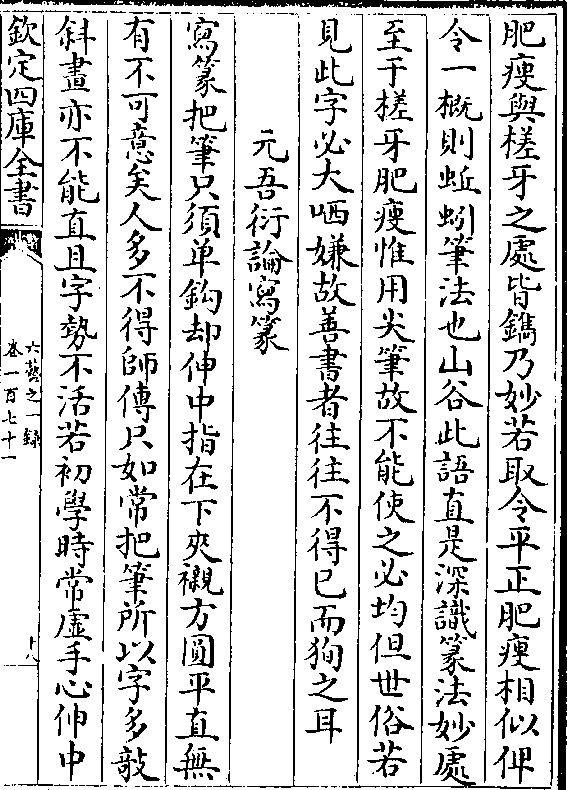 肥瘦與槎牙之處皆鐫乃妙若取令平正肥瘦相似俾
令一概則蚯蚓筆法也山谷此語直是深識篆法妙處
至于槎牙肥瘦惟用尖筆故不能使之必均但世俗若
見此字必大哂嫌故善書者往往不得已而狥之耳
元吾衍論寫篆
寫篆把筆只須单鈎却伸中指在下夾襯方圓平直無
有不可意矣人多不得師傳只如常把筆所以字多敧
斜畫亦不能直且字勢不活若初學時常虛手心伸中
欽定四庫全書
六藝之一録
卷一百七十一
十八